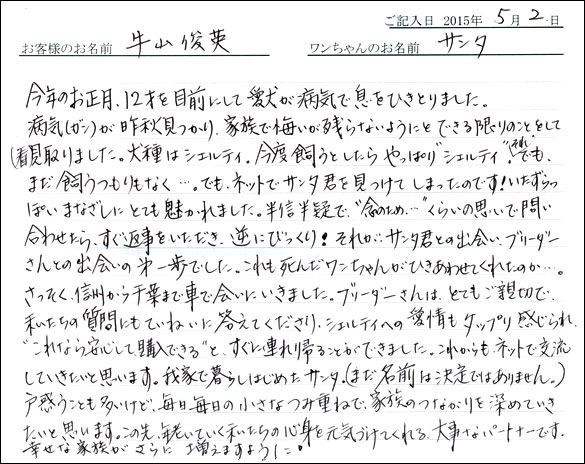 ご記入日 2015年 5月 2日
お客様のお名前 牛山 俊英 ワンちゃんのお名前 サンタ
今年のお正月、12才を目前にして愛犬が病気で息をひきとりました。
病気(ガン)が昨秋見つかり、家族で悔いが残らないようにとできる限りのことをして
看取りました。犬種はシェルティ。今度飼うとしたらやっぱり"シェルティ"それでも、
まだ飼うつもりもなく…。でも、ネットでサンタ君を見つけてしまったのです!いたずらっ
ぽいまなざしにとても魅かれました。半信半疑で、"念のため…"くらいの思いで問い
合わせたら、すぐ返事をいただき、逆にびっくり!それがサンタ君との出会い、ブリーダー
さんとの出会いの第一歩でした。これも死んだワンちゃんがひきあわせてくれたのか…。
さっそく、信州から千葉まで車で会いにいきました。ブリーダーさんは、とてもご親切で、
私たちの質問にもていねいに答えてくださり、シェルティへの愛情もタップリ感じられ、
"これなら安心して購入できる"と、すぐに連れ帰ることができました。これからもネットで交流
していきたいと思います。我家で暮らしはじめたサンタ。(まだ名前は決定ではありません。)
戸惑うことも多いけど、毎日毎日の小さなつみ重ねで、家族のつながりを深めていき
たいと思います。この先、老いていく私たちの心身を元気づけてくれる、大事なパートナーです。
幸せな家族がさらに増えますように。